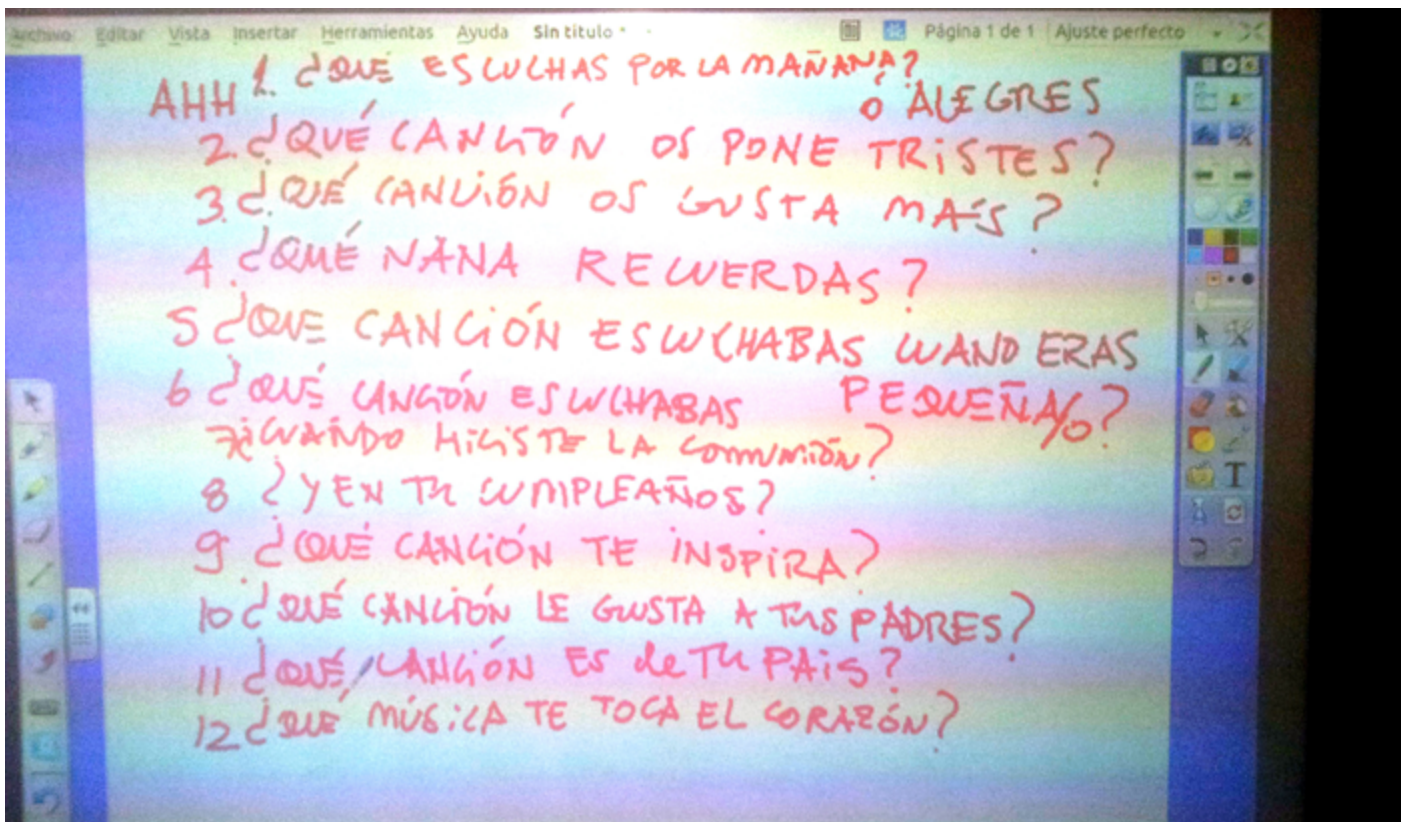 Archivo Editar Vista Insertar Herramientas Ayuda Sin título * Página 1 de 1 Ajuste perfecto
1. ¿QUÉ ESCUCHAS POR LA MAÑANA?
AHH Ó ALEGRES
2. ¿QUÉ CANCIÓN OS PONE TRISTES?
3. ¿QUÉ CANCIÓN OS GUSTA MÁS?
4 ¿QUÉ NANA RECUERDAS?
5 ¿QUE CANCIÓN ESCUCHABAS CUAND ERAS
6 ¿QUÉ CANCIÓN ESCUCHABAS PEQUEÑA/O?
7 ¿CUANDO HICISTE LA COMUNIÓN?
8 ¿Y EN TU CUMPLEAÑOS?
9 ¿QUÉ CANCIÓN TE INSPIRA?
10 ¿QUÉ CANCIÓN LE GUSTA A TUS PADRES?
11 ¿QUÉ CANCIÓN ES de TU PAIS?
12 ¿QUÉ MÚSICA TE TOCA EL CORAZÓN?
T